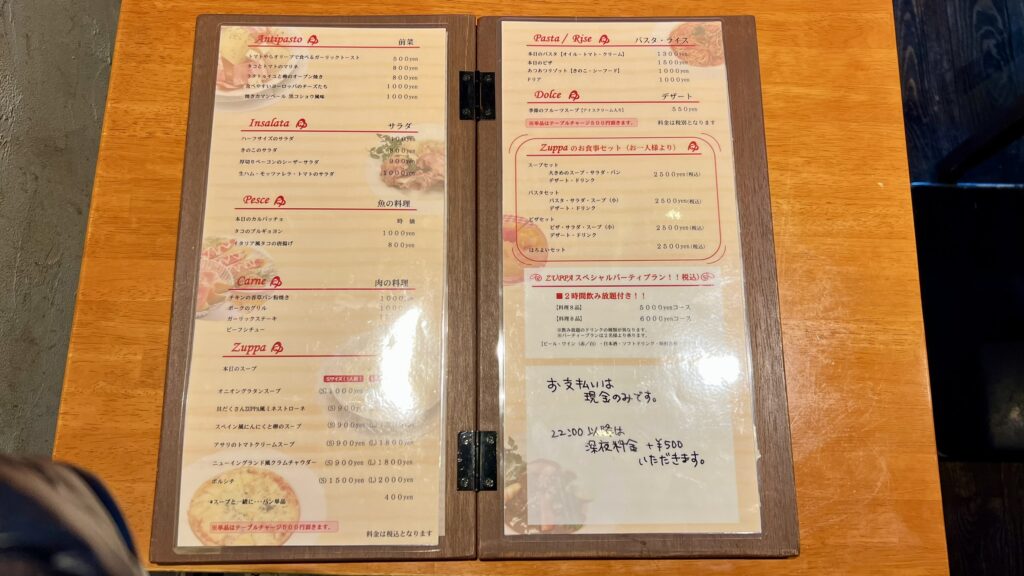 Antipasto 前菜
トマトやらオリーブで食べるガーリックトースト 500yen
タコとトマトのマリネ 800yen
ラタトゥイユと卵のオーブン焼き 800yen
食べやすいヨーロッパのチーズたち 1000yen
焼きカマンベール 黒コショウ風味 1000yen
Insalata サラダ
ハーフサイズのサラダ
きのこのサラダ 800yen
厚切りベーコンのシーザーサラダ 900yen
生ハム・モッツァレラ・トマトのサラダ 1000yen
Pesce 魚の料理
本日のカルパッチョ 時価
タコのブルギョヨン 1000yen
イタリア風タコの唐揚げ 800yen
Carne 肉の料理
チキンの香草パン粉焼き
ポークのグリル
ガーリックステーキ
ビーフシチュー
Zuppa
本日のスープ
Sサイズ(1人前)
オニオングラタンスープ
貝だくさんZUPPA風ミネストローネ (S)900
スペイン風にんにくと卵のスープ (S)900
アサリのトマトクリームスープ (S)900yen (L)1800yen
ニューイングランド風クラムチャウダー (S)900yen (L)1800yen
ボルシチ (S)1500yen (L)2000yen
*スープと一緒に…パン単品 400yen
※単品はテーブルチャージ500円頂きます。
料金は税込となります
Pasta / Rise パスタ・ライス
本日のパスタ【オイル・トマト・クリーム】 1300yen
本日のピザ 1500yen
あつあつリゾット【きのこ・シーフード】 1000yen
ドリア 1000yen
Dolce デザート
季節のフルーツスープ【アイスクリーム入り】 550yen
※単品はテーブルチャージ500円頂きます。 料金は税別となります
Zuppaのお食事セット(お一人様より)
スープセット
大きめのスープ・サラダ・パン 2500yen(税込)
デザート・ドリンク
パスタセット
パスタ・サラダ・スープ(小) 2500yen(税込)
デザート・ドリンク
ピザセット
ピザ・サラダ・スープ(小) 2500yen(税込)
デザート・ドリンク
ほろよいセット 2500yen(税込)
ZUPPAスペシャルパーティプラン!!税込)
■2時間飲み放題付き!!
【料理8品】 5000yenコース
【料理8品】 6000yenコース
※飲み放題のドリンクの種類が異なります。
※パーティープランは2名様より承ります。
【ビール・ワイン(赤/白)・日本酒・ソフトドリンク・
お支払いは
現金のみです。
22:00以降は
深夜料金 +¥500
いただきます。